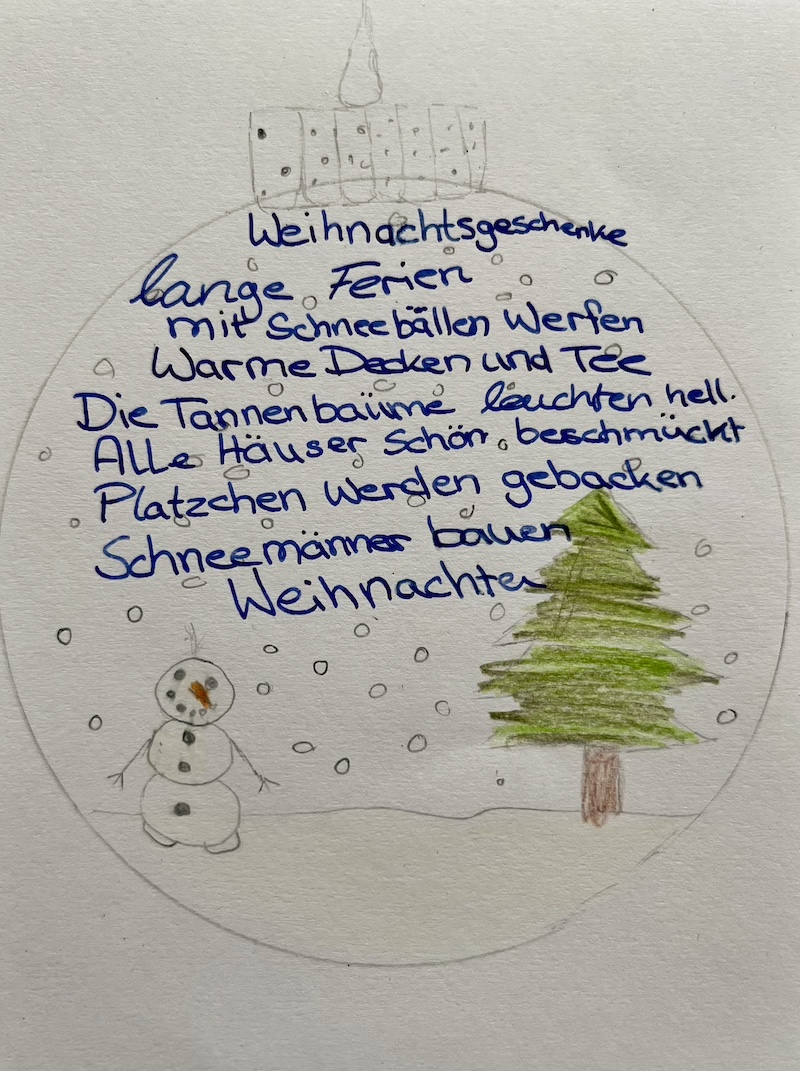 Weihnachtsgeschenke
lange Ferien
mit Schneebällen Werfen
Warme Decken und Tee
Die Tannenbäume leuchten hell.
Alle Häuser Schön beschmückt
Platzchen werden gebacken
Schneemänner bauen
Weihnachten